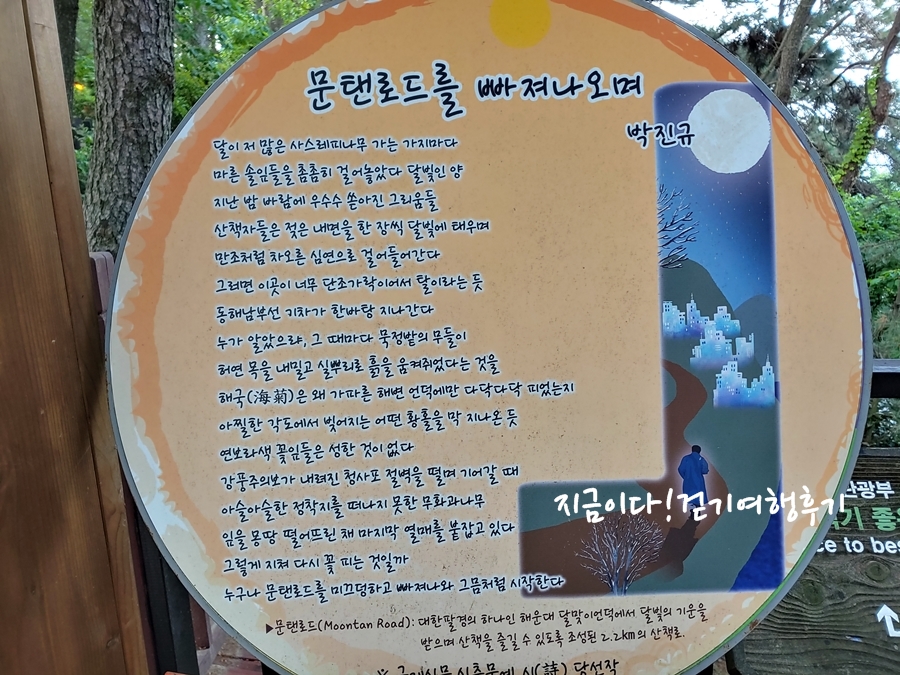 문탠로드를 빠져나오며
박진규
달이 저 많은 사스레피나무 가는 가지마다
마른 솔잎들을 촘촘히 걸어놓았다 달빛인 양
지난 밤 바람에 우수수 쏟아진 그리움들
산책자들은 젖은 내면을 한 장씩 달빛에 태우며
만조처럼 차오른 심연으로 걸어들어간다
그러면 이곳이 너무 단조가락이어서 탈이라는 듯
동해남부선 기차가 한바탕 지나간다
누가 알았으랴, 그 때마다 묵정밭의 무들이
허연 목을 내밀고 실뿌리로 흙을 움켜쥐었다는 것을
해국(海菊)은 왜 가파른 해변 언덕에만 다닥다닥 피었는지
아찔한 각도에서 빚어지는 어떤 황홀을 막 지나온 듯
연보라색 꽃잎들은 성한 것이 없다
강풍주의보가 내려진 청사포 절벽을 떨며 기어갈 때
아슬아슬한 정착지를 떠나지 못한 무화과나무
잎을 몽땅 떨어뜨린 채 마지막 열매를 붙잡고 있다
그렇게 지켜 다시 꽃 피는 것일까
누구나 문탠로드를 미끄덩하고 빠져나와 그믐처럼 시작한다
지금이다!걷기여행후기
▶문탠로드(Moontan Road): 대한팔경의 하나인 해운대 달맞이언덕에서 달빛의 기운을
받으며 산책을 즐길 수 있도록 조성된 2.2km의 산책로.
※ 국제신문 신춘문예 시(詩) 당선작
관광부
기 좋은
ce to be